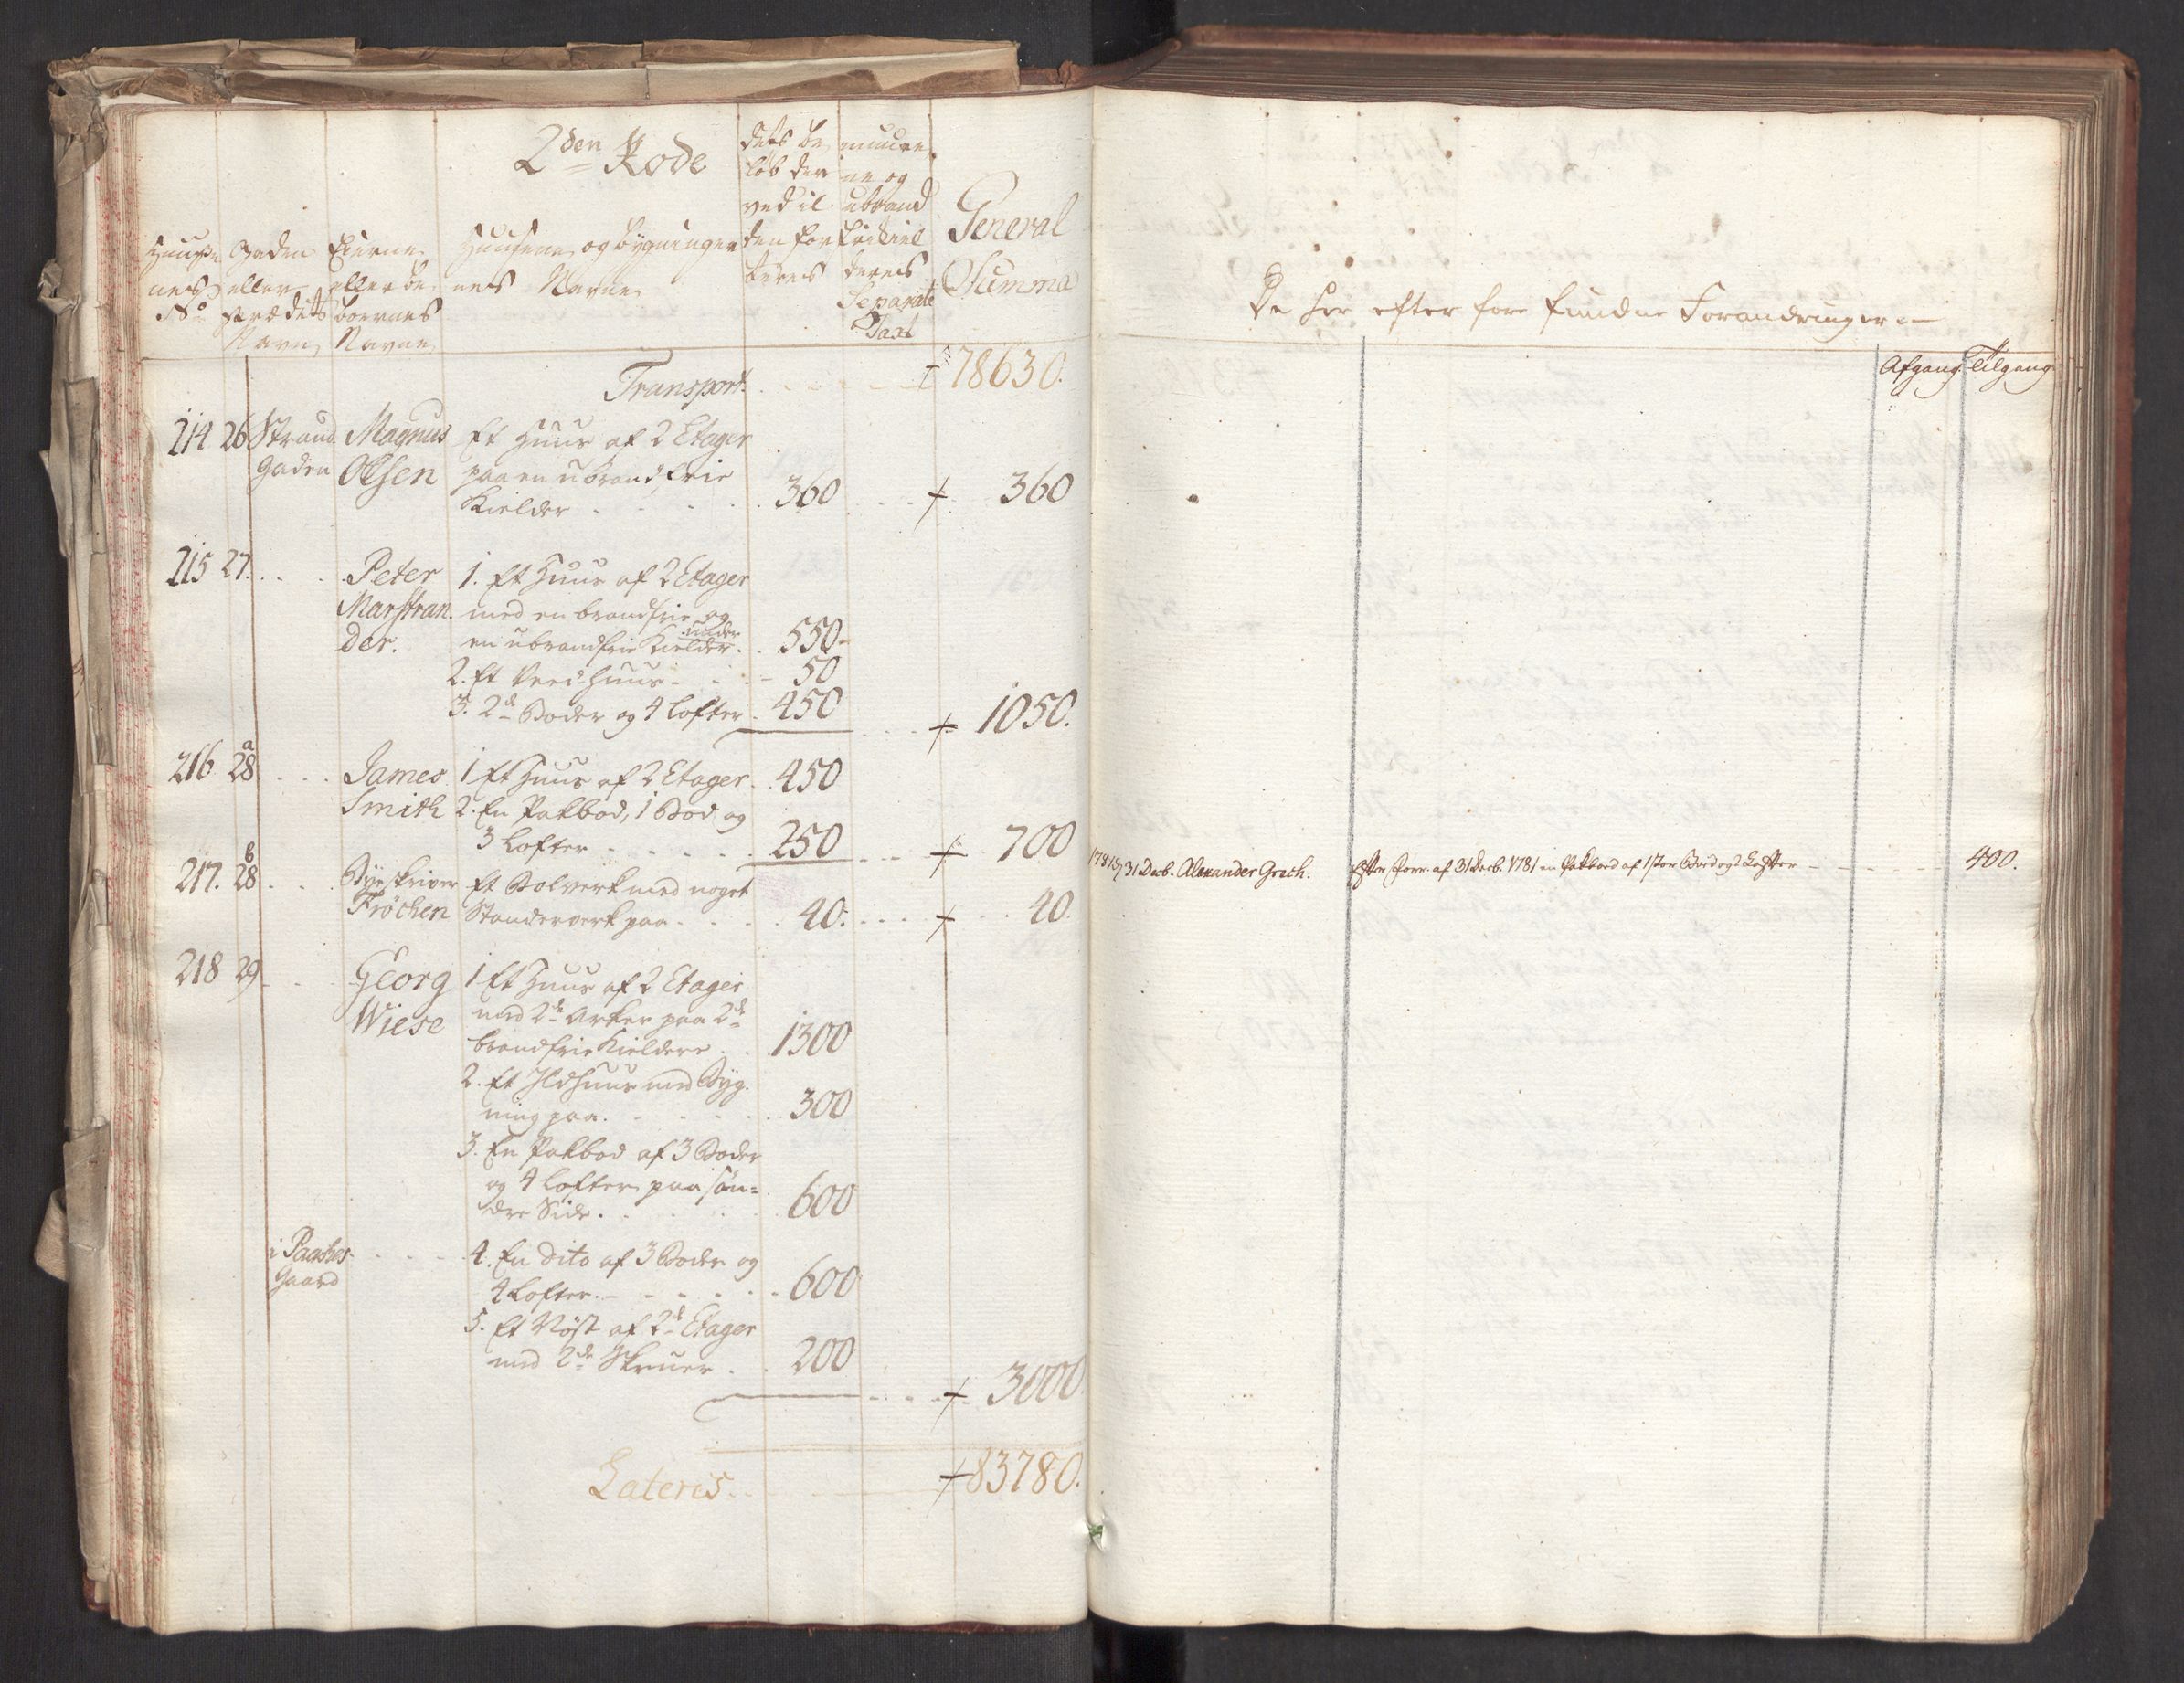 2den Rode
Huuse- nes No
Gaden eller strædets Navn
Eierne eller be- boernes Navne
Huusene og bygninger- nes Navne
dets be- løb der- ved il- den for- teres
muure- ne og ubrand frikiel deres Separate Taxt
General Summa
Transport 78630.
214 26 Strand Magnus Et Huus af 2 Etager
Gaden Olsen paa en ubrandfrie
Kielder 360 360
215 27. Peter 1. Et Huus af 2 Etager
Marstran- med en brandfrie og
der. en ubrandfrie Kielder under 550
2. Et Veedhuus 50
3. 2de Boder og 4 Lofter 450 1050.
216 28 a James 1 Et Huus af 2 Etager 450
Smith 2. En Pakbod, 1 Bod og
3 Lofter 250 700
217. 28 b Byeskriver Et Bolverk med noget
Fröchen Standerverk paa 40. 40.
218 29 Georg 1 Et Huus af 2 Etager
Wiese med 2de Arker paa 2de
brandfrie Kieldere 1300
2. Et Ildhuus med Byg-
ning paa 300
3. En Pakbod af 3 Boder
og 4 Lofter paa søn-
dre Side 600
i Paaskes 4. En dito af 3 Boder og
Gaard 4 Lofter 600
5. Et Nøst af 2de Etager
med 2de Skruer 200
3000
Lateris 83780.
De her efter fore fundne Forandringer
Afgang Tilgang
1781 31 Decb. Alexander Grech. Efter Forr. af 31 Decb. 1781 en Pakboed af 1 stor Boed og 2 Lofter 400.